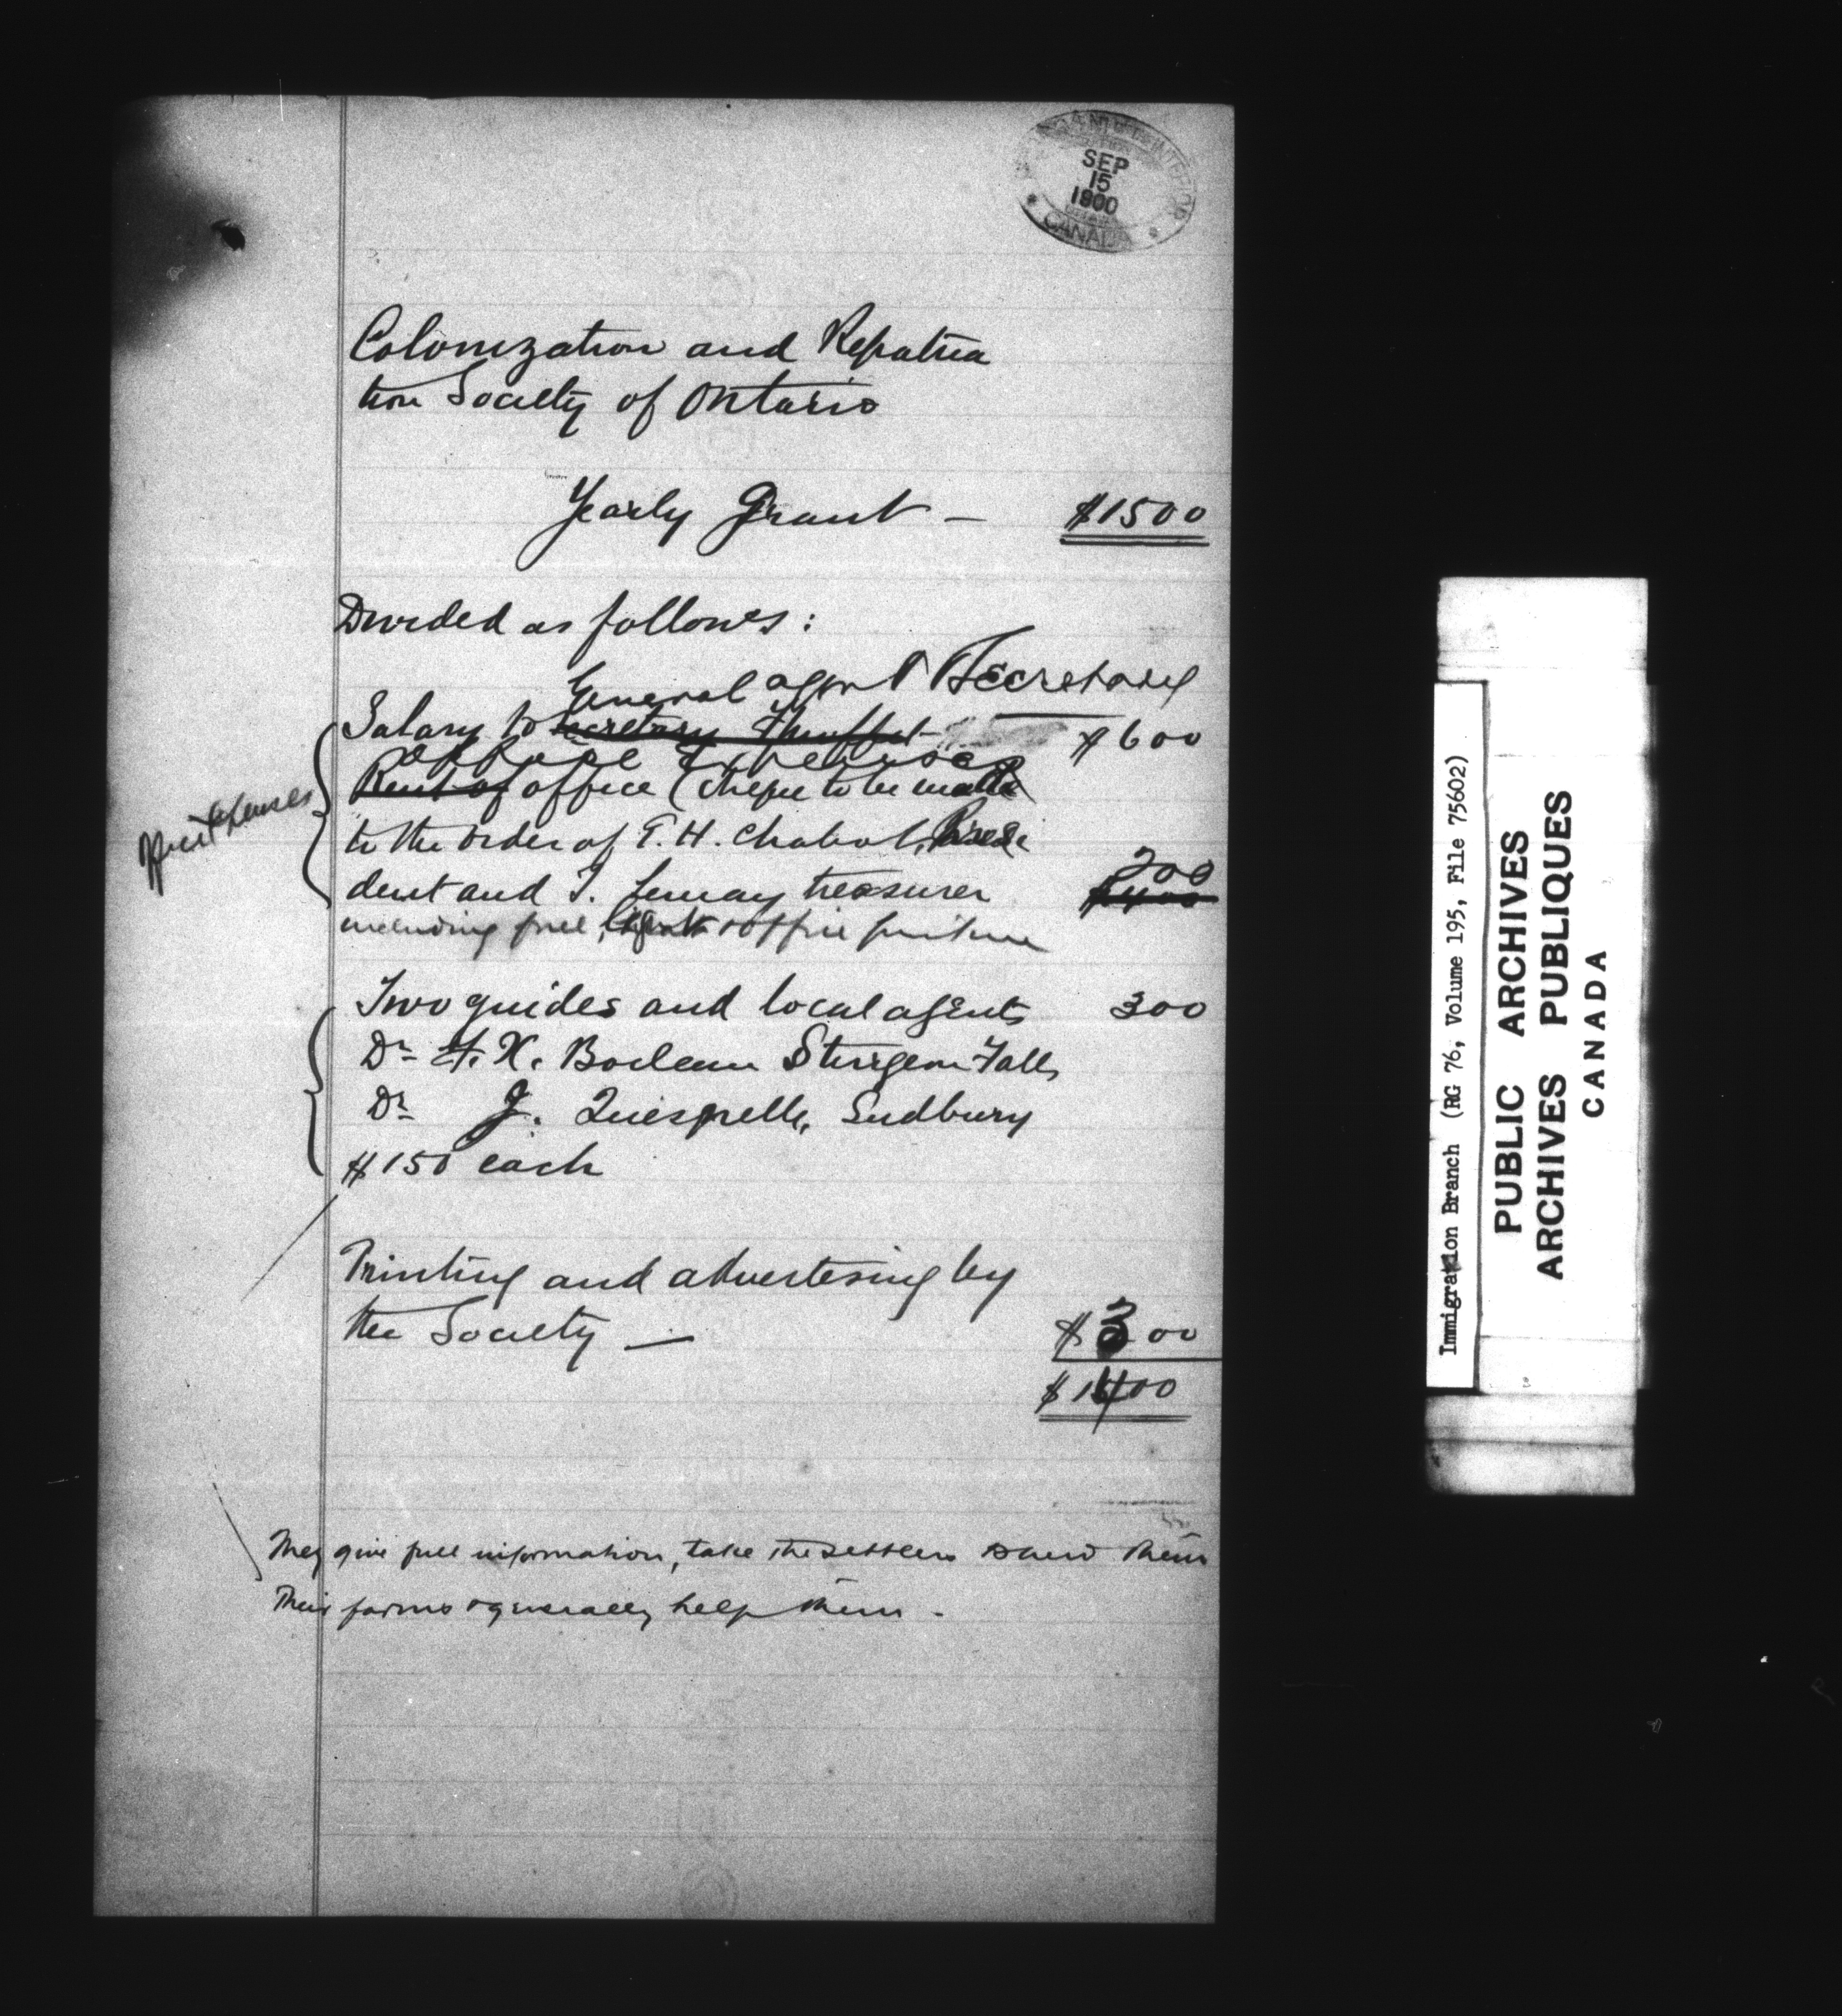 DEPARTMENT OF THE INTERIOR
SEP
15
1900
CANADA
Colonization and Repatria
tion Society of Ontario
Yearly Grant — $1500
Divided as follows:
General agent & Secretary
Salary to secretary $600
Office Expenses
Rent of office (cheque to be made
to the order of T. H. Chabot, Presi
dent and T. Lemay treasurer 200
$400
including fuel, light & office furniture
Two guides and local agents 300
Dr F. X. Boileau Sturgeon Falls
Dr J. Sudbury
$150 each
Printing and advertising by
the Society — $300
$1400
They give full information, take the settlers & show them
Their farms & generally help them.
Immigration Branch (RG 76, Volume 195, File 75602)
PUBLIC ARCHIVES
ARCHIVES PUBLIQUES
CANADA